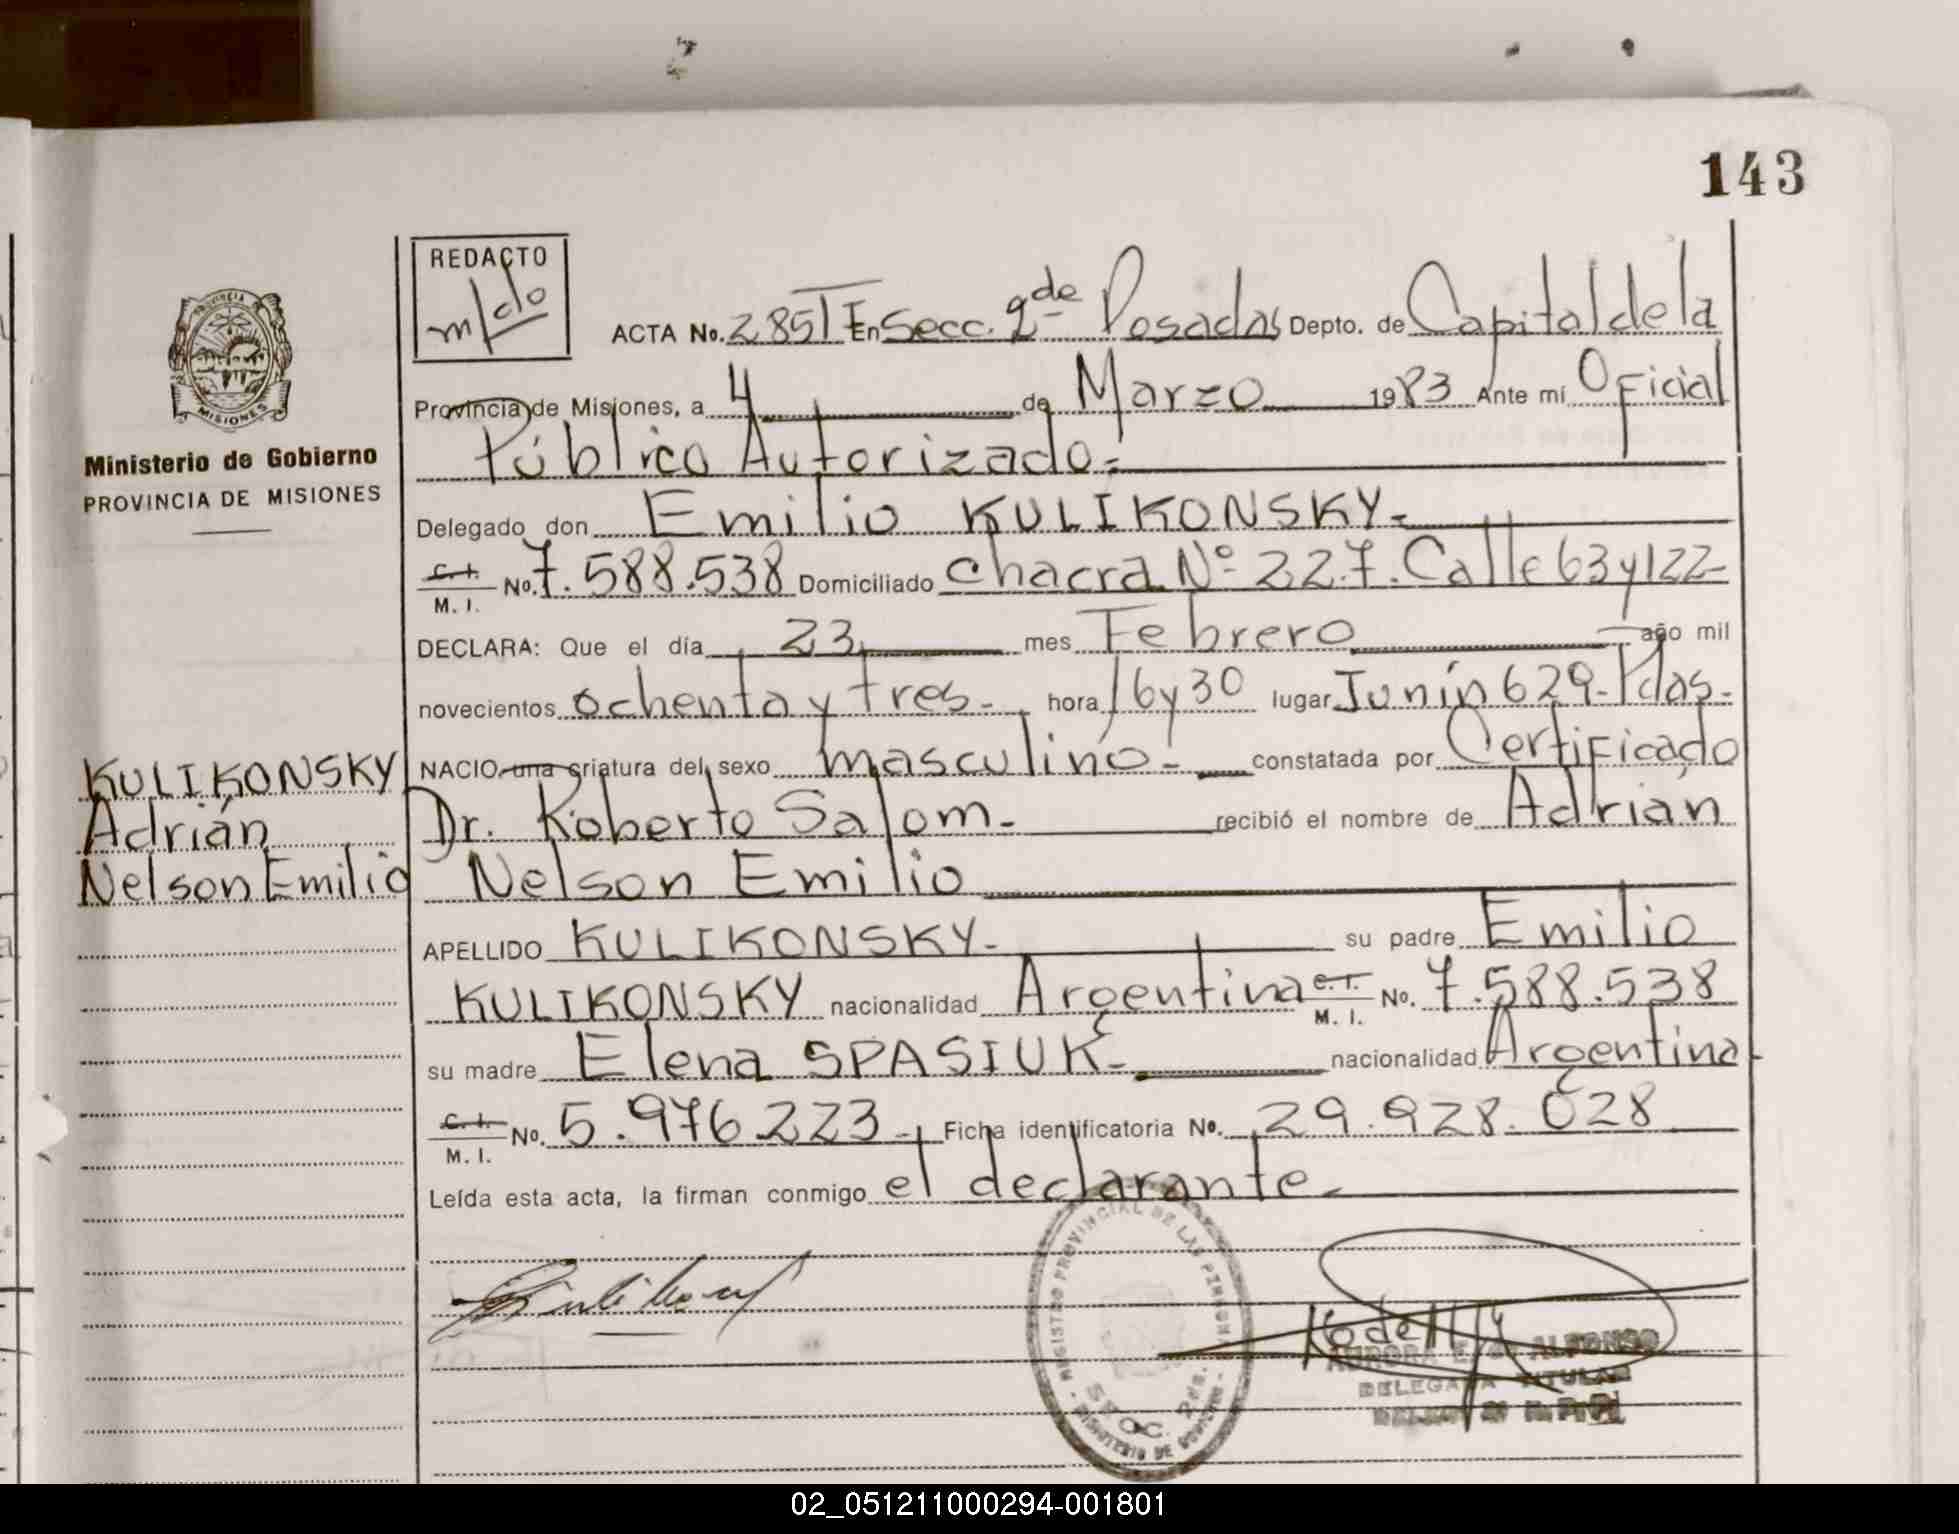 143
REDACTO
PROVINCIA
MISIONES
Ministerio de Gobierno
PROVINCIA DE MISIONES
ACTA No. 285 I En Secc. 2de Posadas Depto. de Capital de la
Provincia de Misiones, a 4 de Marzo 1983 Ante mí Oficial
Público Autorizado.-
Delegado don Emilio KULIKONSKY.-
C. I. M. I. No. 7.588.538 Domiciliado chacra Nº 227. Calle 63 y 122-
DECLARA: Que el día 23 mes Febrero año mil
novecientos ochenta y tres.- hora 16 y 30 lugar Junín 629- Pdas.-
NACIO una criatura del sexo masculino.- constatada por Certificado
Dr. Roberto Salom.- recibió el nombre de Adrián
Nelson Emilio
KULIKONSKY
Adrián
Nelson Emilio
APELLIDO KULIKONSKY.- su padre Emilio
KULIKONSKY nacionalidad Argentina C. I. M. I. No. 7.588.538
su madre Elena SPASIUK.- nacionalidad Argentina
C. I. M. I. No. 5.976.223.- Ficha identificatoria No. 29.928.028
Leída esta acta, la firman conmigo el declarante.-
REGISTRO PROVINCIAL DE LAS PERSONAS
MINISTERIO DE GOBIERNO
AURORA ALFONSO
DELEGADA TITULAR
02_051211000294-001801